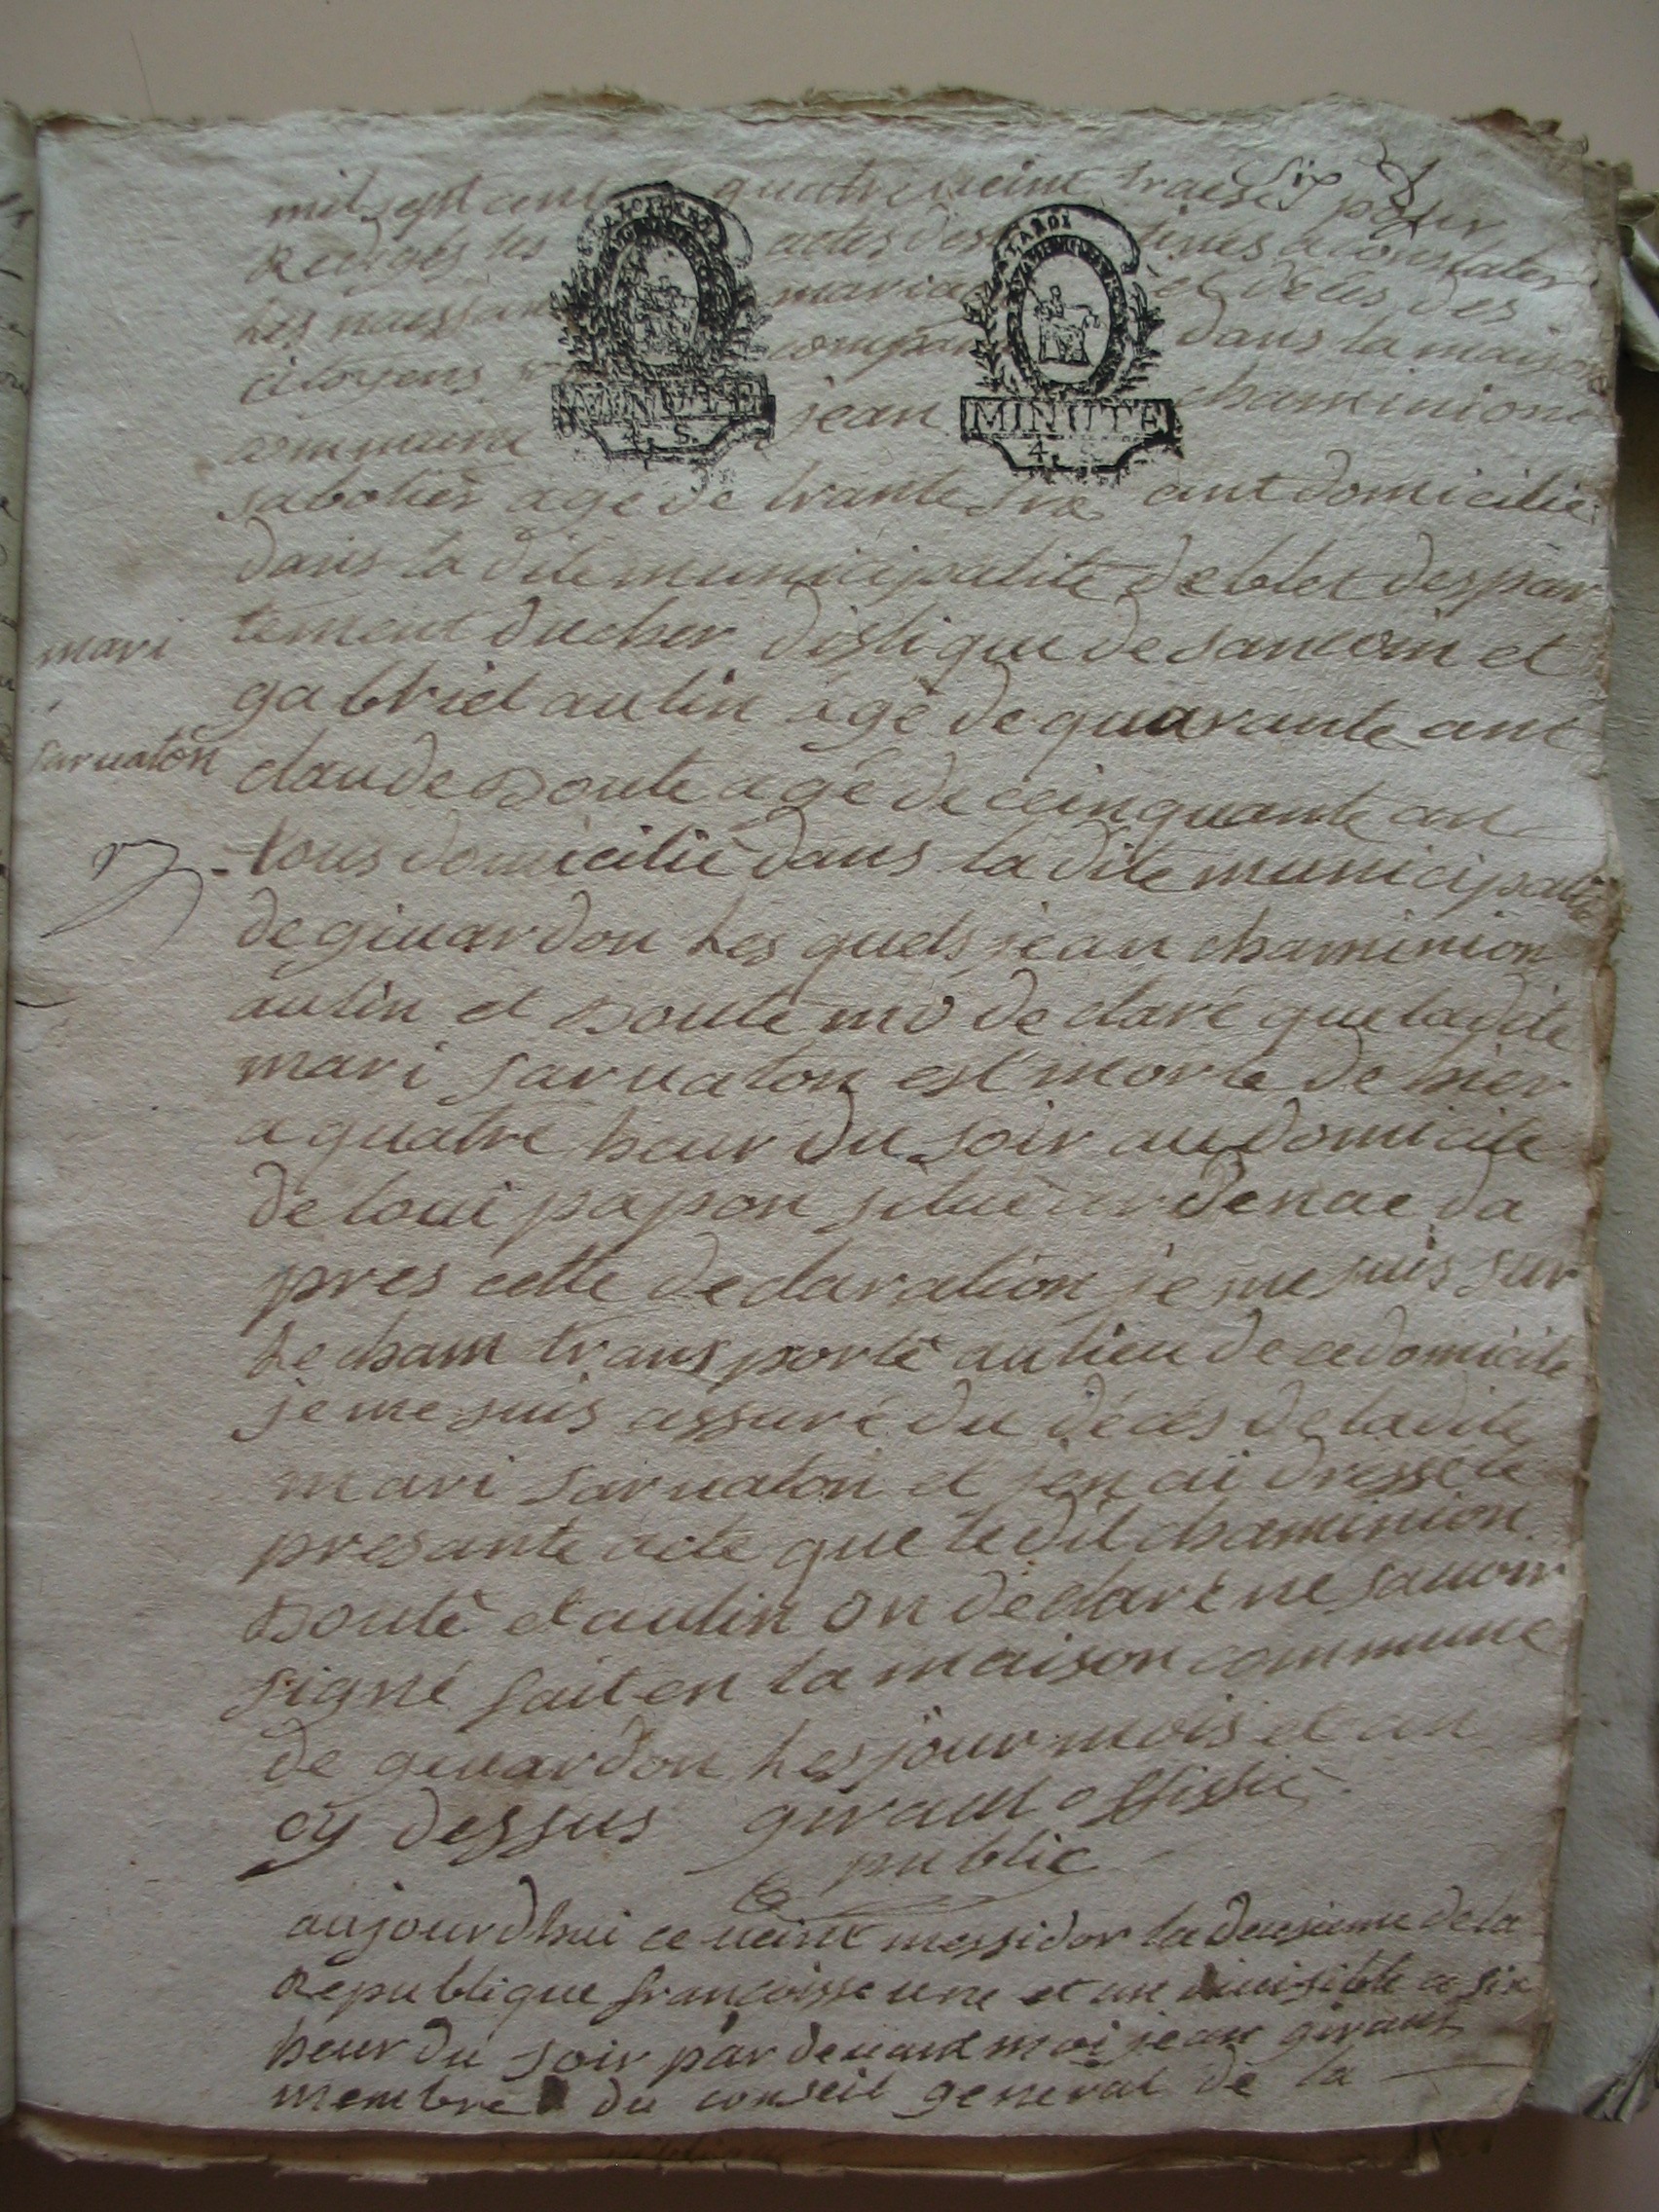 six
mil sept cent quatre veint traise pour
Rediges les actes destines a constater
Les naissances mariages et déces des
citoyens dans la maison
commune jean chaminion
LA LOI
MINUTE
4. S.
LA LOI
MINUTE
4. S.
sabotier age de trante six ant domicilié
dans la dite municipalité de blet despar
tement du cher distique de sancoin et
gabriel autin agé de quarante ant
claude Douté agé de ceinquante an
tous domicilié dans la dite municipalité
de givardon Les quels jean chaminion
autin et Douté mo declaré que la dite
mari sarvaton est morte de hier
a quatre heur du soir au domicile
de loui papon situé ardenae da
pres cette declaration je me suis sur
Le cham transporté au lieu de ce domicile
je me suis assuré du décés de la dite
mari sarvaton et jen ai dressé le
presante acte que le dit chaminion
Douté et autin on declaré ne savoir
signé fait en la maison commune
de givardon Les jour mois et an
cy dessus girault offissié
public
mari
sarvaton
aujourdhui ce veint messidor la deusieme de la
Republique francoisse une et un divisible a six
heur du soir par devant moi jean girault
membre du conseil general de la